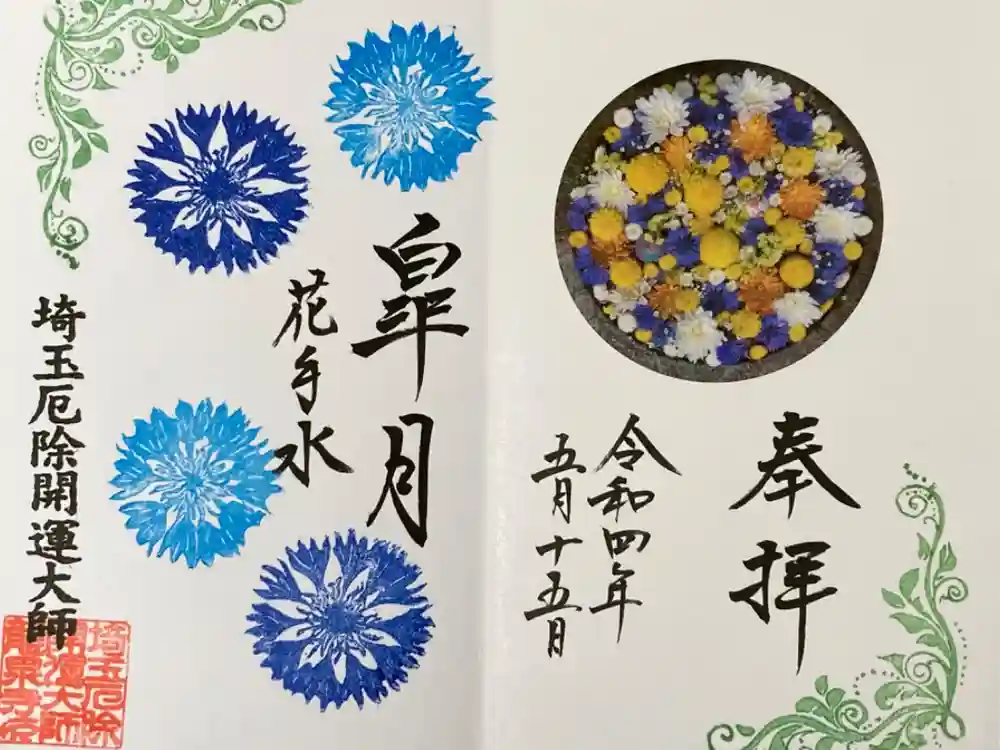 奉拝
令和四年
五月十五日
皐月
花手水
埼玉厄除開運大師
埼玉厄除
開運大師
龍泉寺印